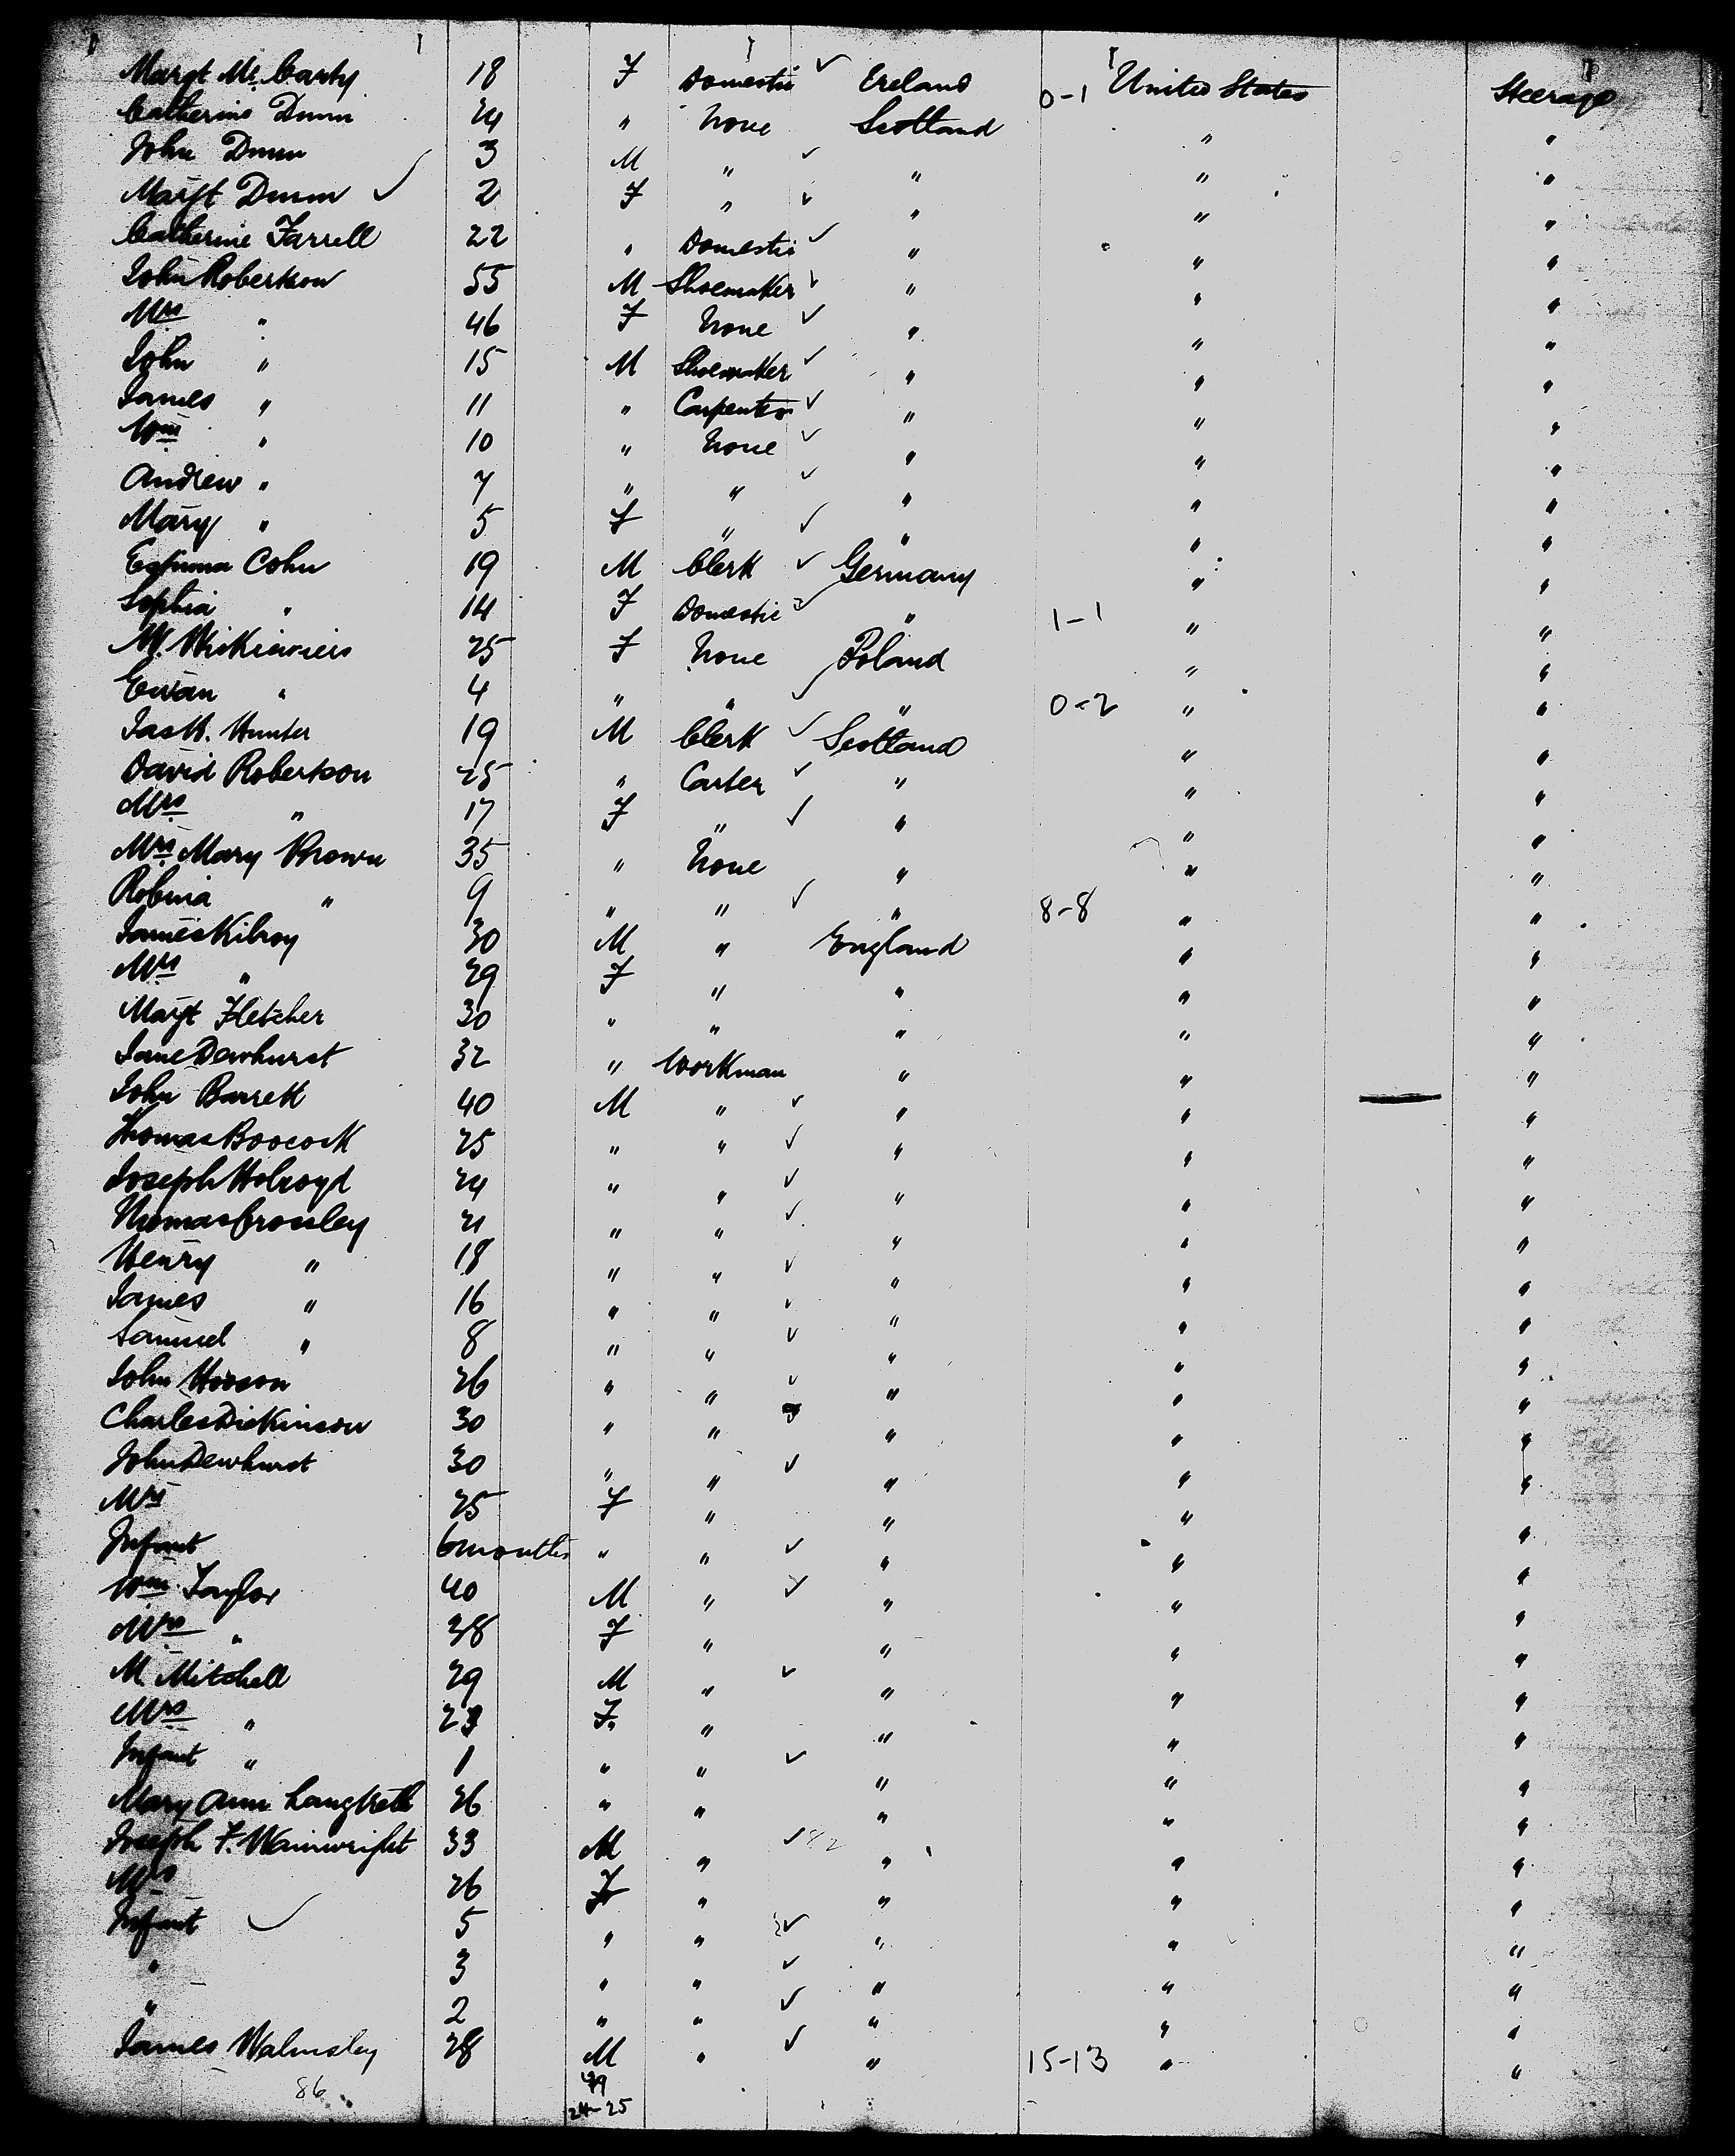 Margt Mc Carty 18 F Domestic Ireland 0-1 United States Steerage
Catherine Dunn 24 " None Scotland " "
John Dunn 3 M " " " "
Margt Dunn 2 F " " " "
Catherine Farrell 22 " Domestic " " "
John Robertson 55 M Shoemaker " " "
Mrs " 46 F None " " "
John " 15 M Shoemaker " " "
James " 11 " Carpenter " " "
Wm " 10 " None " " "
Andrew " 7 " " " " "
Mary " 5 F " " " "
Cohn 19 M Clerk Germany " "
Sophia " 14 F Domestic " 1-1 " "
M. 25 F None Poland " "
Ewan " 4 " " " 0-2 " "
Jas H. Hunter 19 M Clerk Scotland " "
David Robertson 25 " Carter " " "
Mrs " 17 F " " " "
Mrs Mary Brown 35 " None " " "
Robina " 9 " " " 8-8 " "
James Kilroy 30 M " England " "
Mrs " 29 F " " " "
Margt Fletcher 30 " " " " "
Jane Dewhurst 32 " Workman " " "
John Barrett 40 M " " " "
Thomas Boocock 25 " " " " "
Joseph Holroyd 24 " " " " "
Thomas Crossley 21 " " " " "
Henry " 18 " " " " "
James " 16 " " " " "
Samuel " 8 " " " " "
John 26 " " " " "
Charles Dickinson 30 " " " " "
John Dewhurst 30 " " " " "
Mrs 25 F " " " "
Infant 6 months " " " " "
Wm Taylor 40 M " " " "
Mrs " 38 F " " " "
M. Mitchell 29 M " " " "
Mrs " F " " " "
Infant " 1 " " " " "
Mary Ann 26 " " " " "
Joseph F. Wainwright 33 M " " " "
Mrs 26 F " " " "
Infant 5 " " " " "
" 3 " " " " "
" 2 " " " " "
James Walmsley 28 M " " 15-13 " "
86
24-25